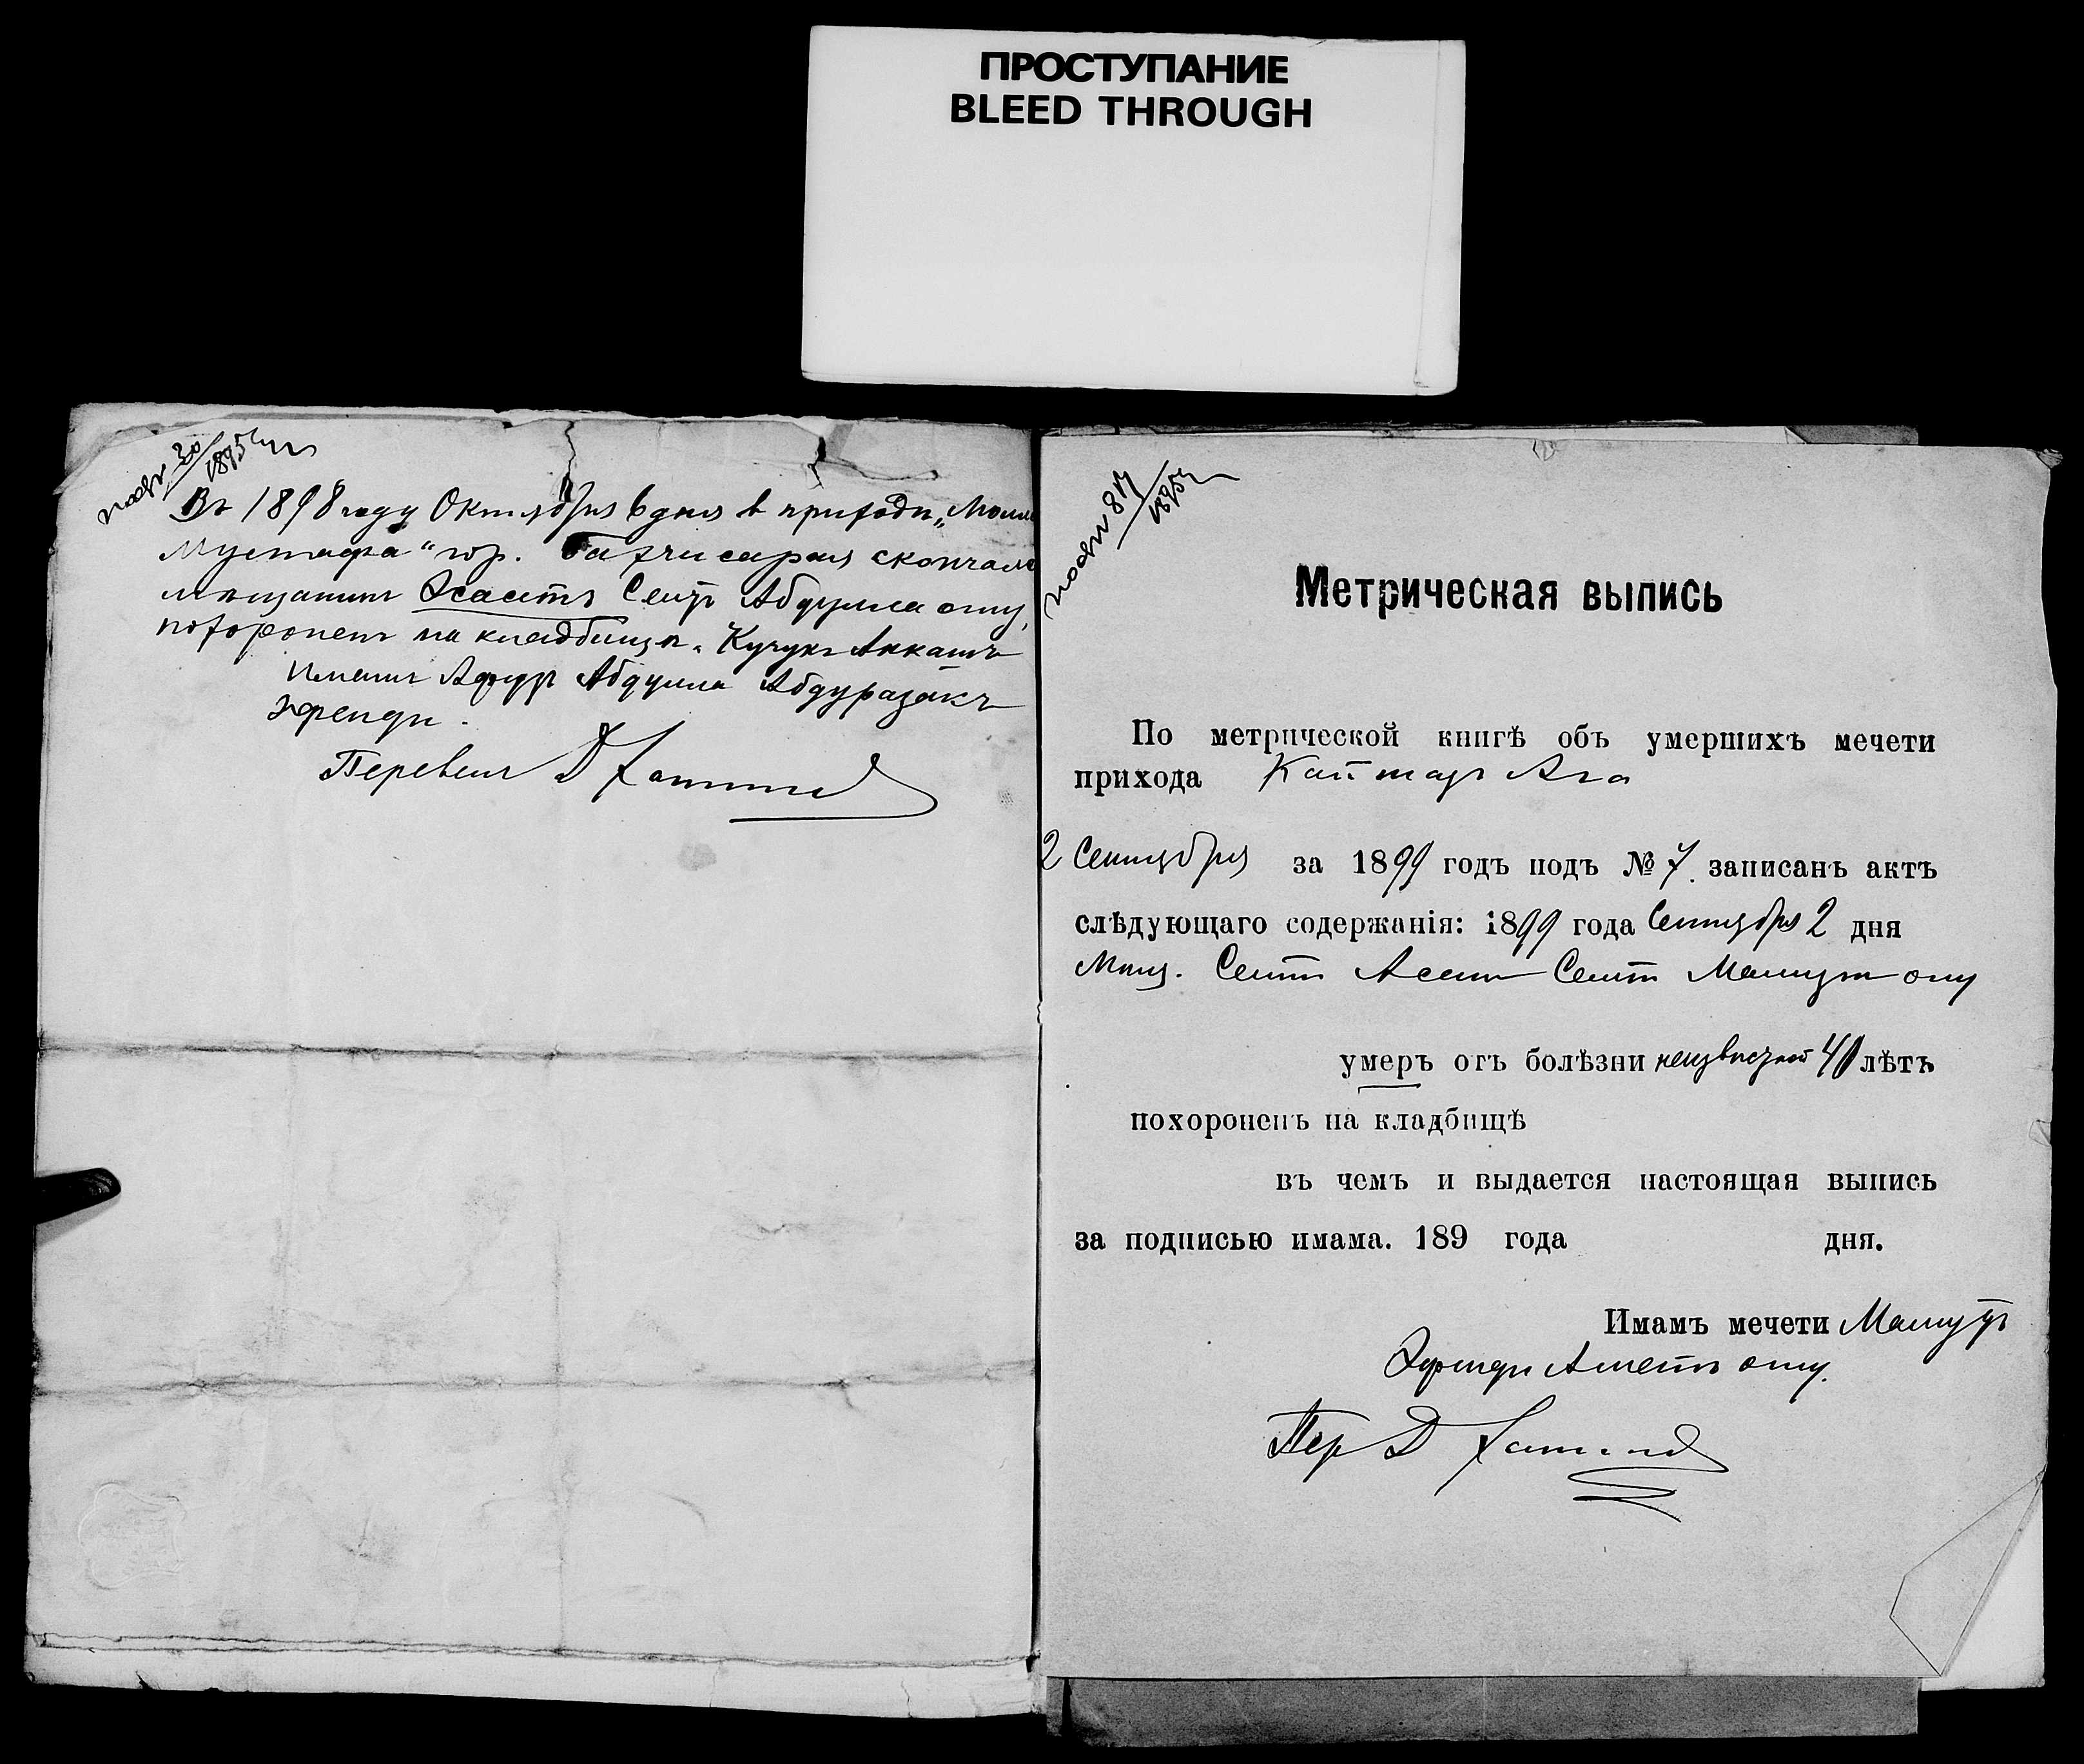 ПРОСТУПАНИЕ
BLEED THROUGH
30/1895
Въ 1898 году Октября 6 дня в приходѣ „Молла
Мустафа“ гор. Бахчисарая скончался
мѣщанинъ Эсаетъ Сеитъ Абдулла оглу,
похороненъ на кладбищѣ „Кучукъ Аккашъ
Имамъ Абдулла Абдуразакъ
эфенди.
Перевелъ Д
1895
Метрическая выпись
По метрической книгѣ объ умершихъ мечети
прихода Кайтазъ Ага
2 Сентября за 1899 годъ подъ № 7. записанъ актъ
слѣдующаго содержанія: 1899 года Сентября 2 дня
Мѣщ. Сеитъ Асанъ Сеитъ Мамутъ оглу
умеръ отъ болѣзни неизвѣстной 40 лѣтъ
похороненъ на кладбищѣ
въ чемъ и выдается настоящая выпись
за подписью имама. 189 года дня.
Имамъ мечети Мамутъ
Эфенди Аметъ оглу.
Пер Д